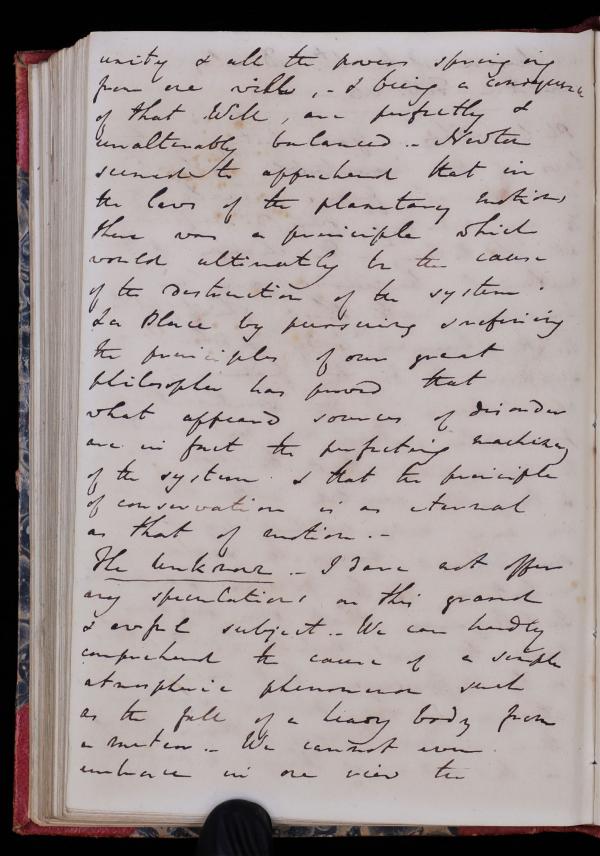 unity & all the powers springing
from one will, - & being a consequence
of that Will, are perfectly &
unalterably balanced. - Newton
seemed to apprehend that in
the laws of the planetary motions
there was a principle which
would ultimately be the cause
of the destruction of the system.
La Place by pursuing & refining
the principles of our great
philosopher has proved that
what appeard sources of disorder
are in fact the perfecting machinery
of the system & that the principle
of conservation is as eternal
as that of motion. -
The Unknown. - I dare not offer
any speculations on this grand
& awful subject. - We can hardly
comprehend the cause of a simple
atmospheric phenomenon such
as the fall of a heavy body from
a meteor. - We cannot even
embrace in one view the